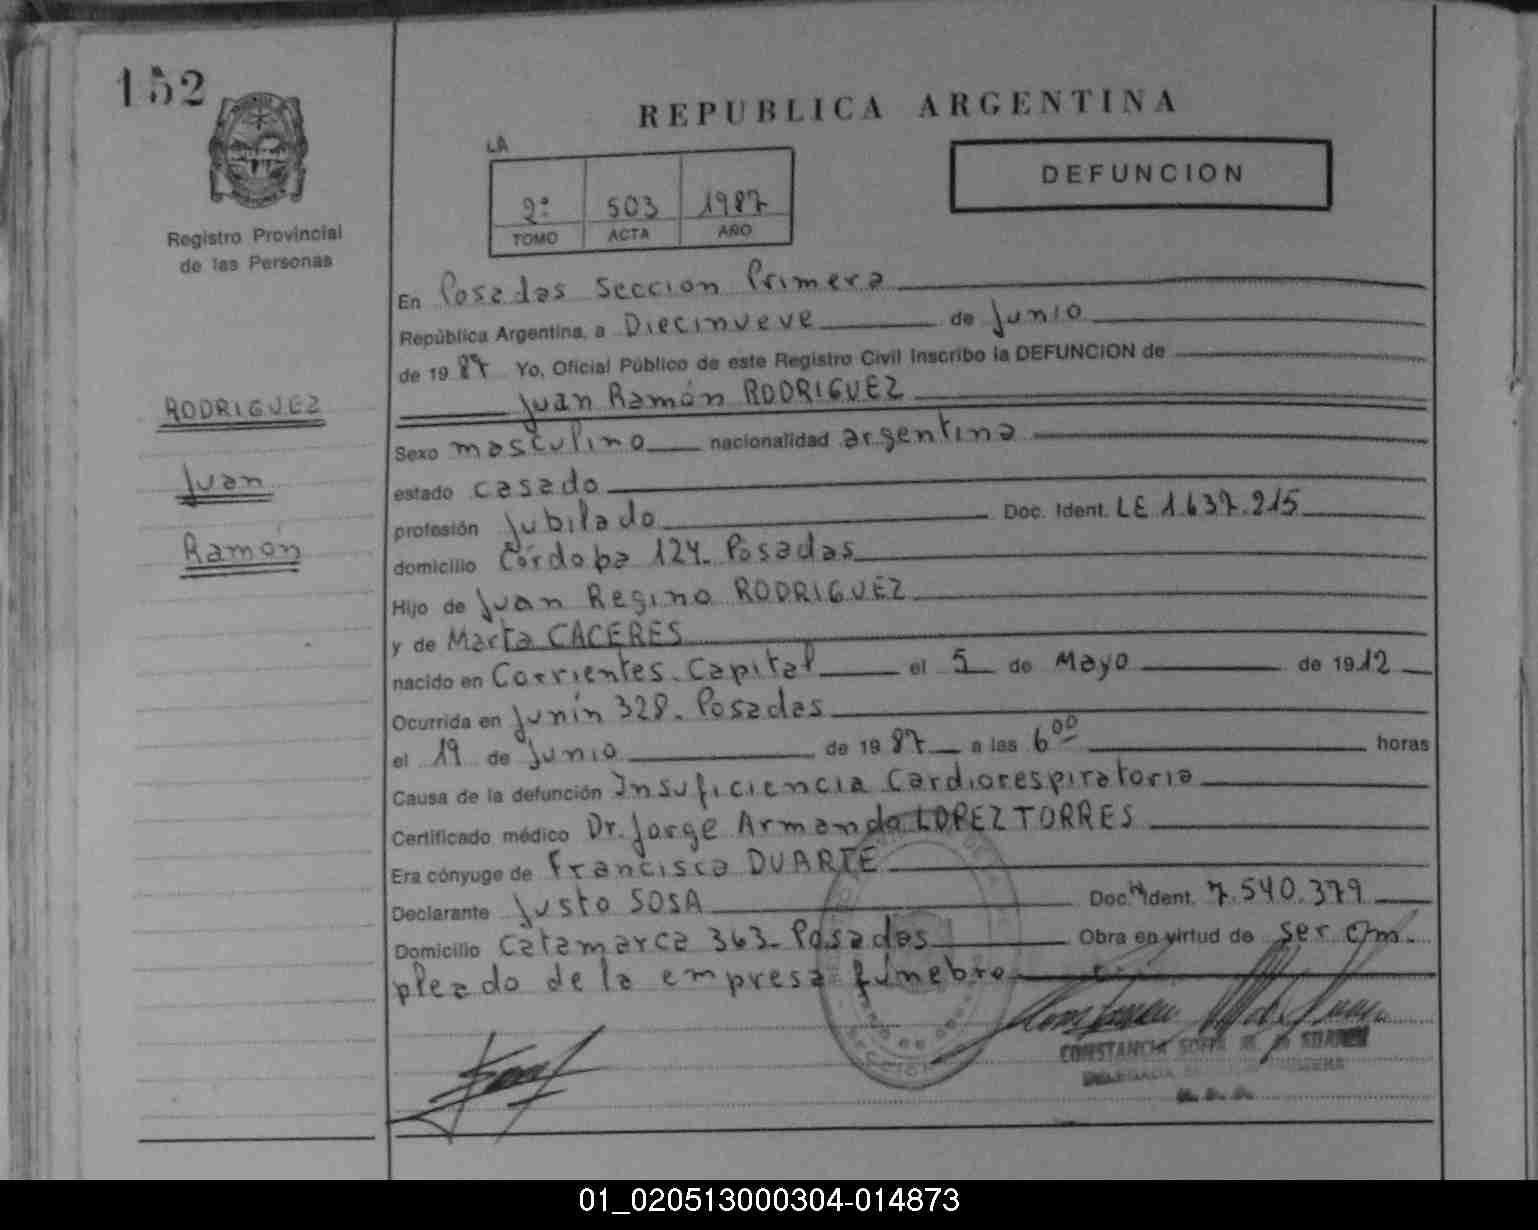 152
REPUBLICA ARGENTINA
LA
DEFUNCION
2º 503 1987
TOMO ACTA AÑO
Registro Provincial
de las Personas
En Posadas Sección Primera
República Argentina, a Diecinueve de Junio
de 1987 Yo, Oficial Público de este Registro Civil Inscribo la DEFUNCION de
Juan Ramón RODRIGUEZ
RODRIGUEZ
Juan
Ramón
Sexo masculino nacionalidad argentina
estado casado
profesión jubilado Doc. Ident. LE 1.637.215
domicilio Córdoba 124. Posadas
Hijo de Juan Regino RODRIGUEZ
y de Marta CACERES
nacido en Corrientes. Capital el 5 de Mayo de 1912
Ocurrida en Junín 328. Posadas
el 19 de Junio de 1987 a las 6 00 horas
Causa de la defunción Insuficiencia Cardiorespiratoria
Certificado médico Dr. Jorge Armando LOPEZ TORRES
Era cónyuge de Francisca DUARTE
Declarante Justo SOSA Doc. Ident. 7.540.379
Domicilio Catamarca 363. Posadas Obra en virtud de ser em-
pleado de la empresa fúnebre
CONSTANCIA
SECCION
01_020513000304-014873